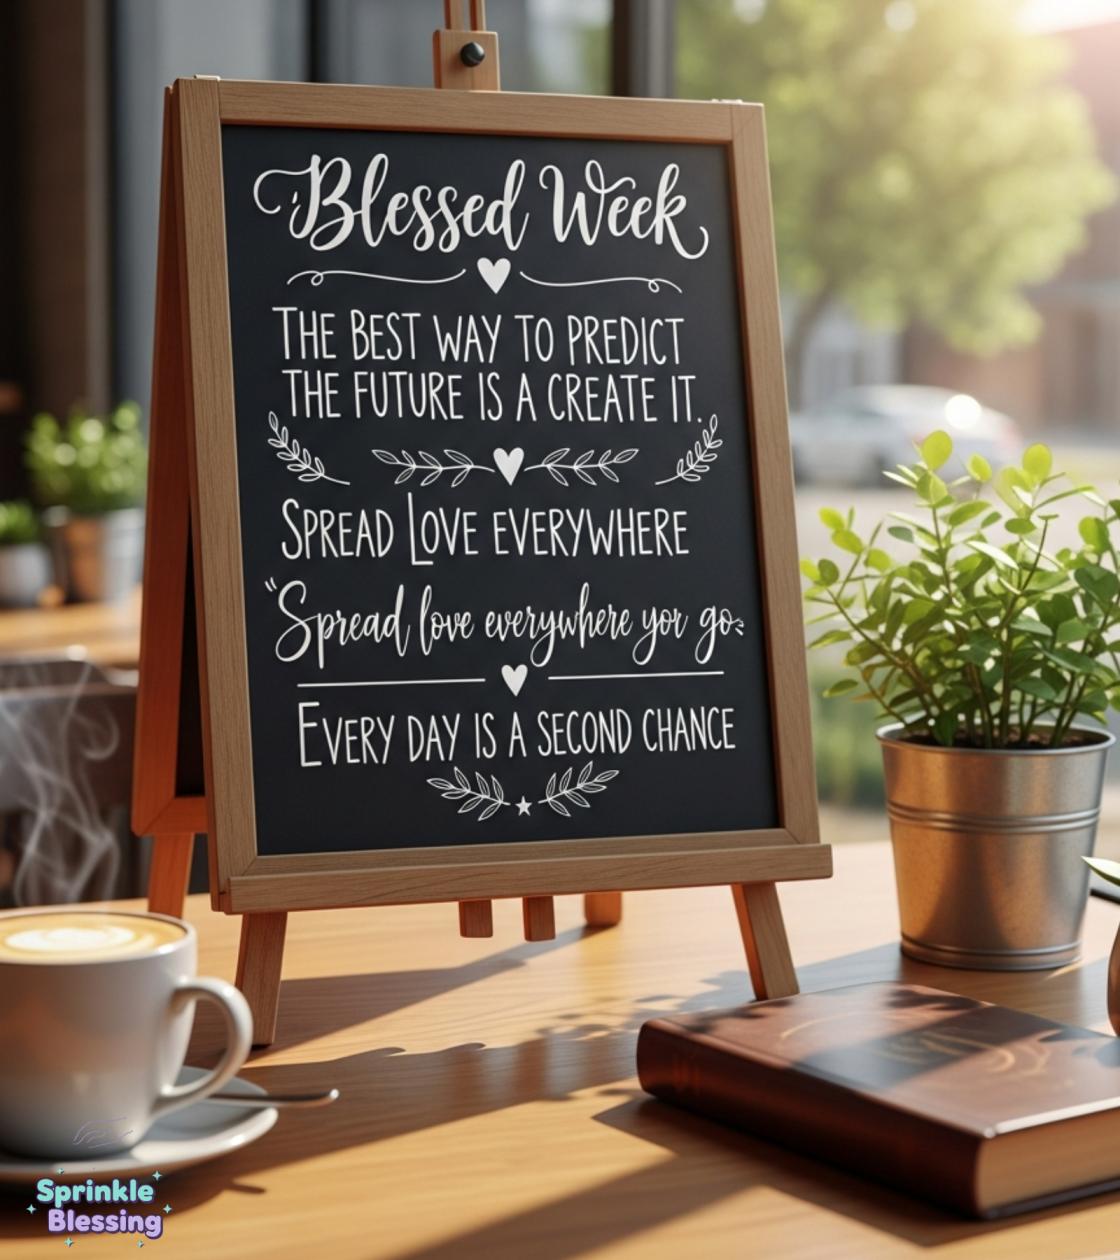 Blessed Week
THE BEST WAY TO PREDICT
THE FUTURE IS A CREATE IT.
SPREAD LOVE EVERYWHERE
"Spread love everywhere yor go
EVERY DAY IS A SECOND CHANCE
Sprinkle
Blessing